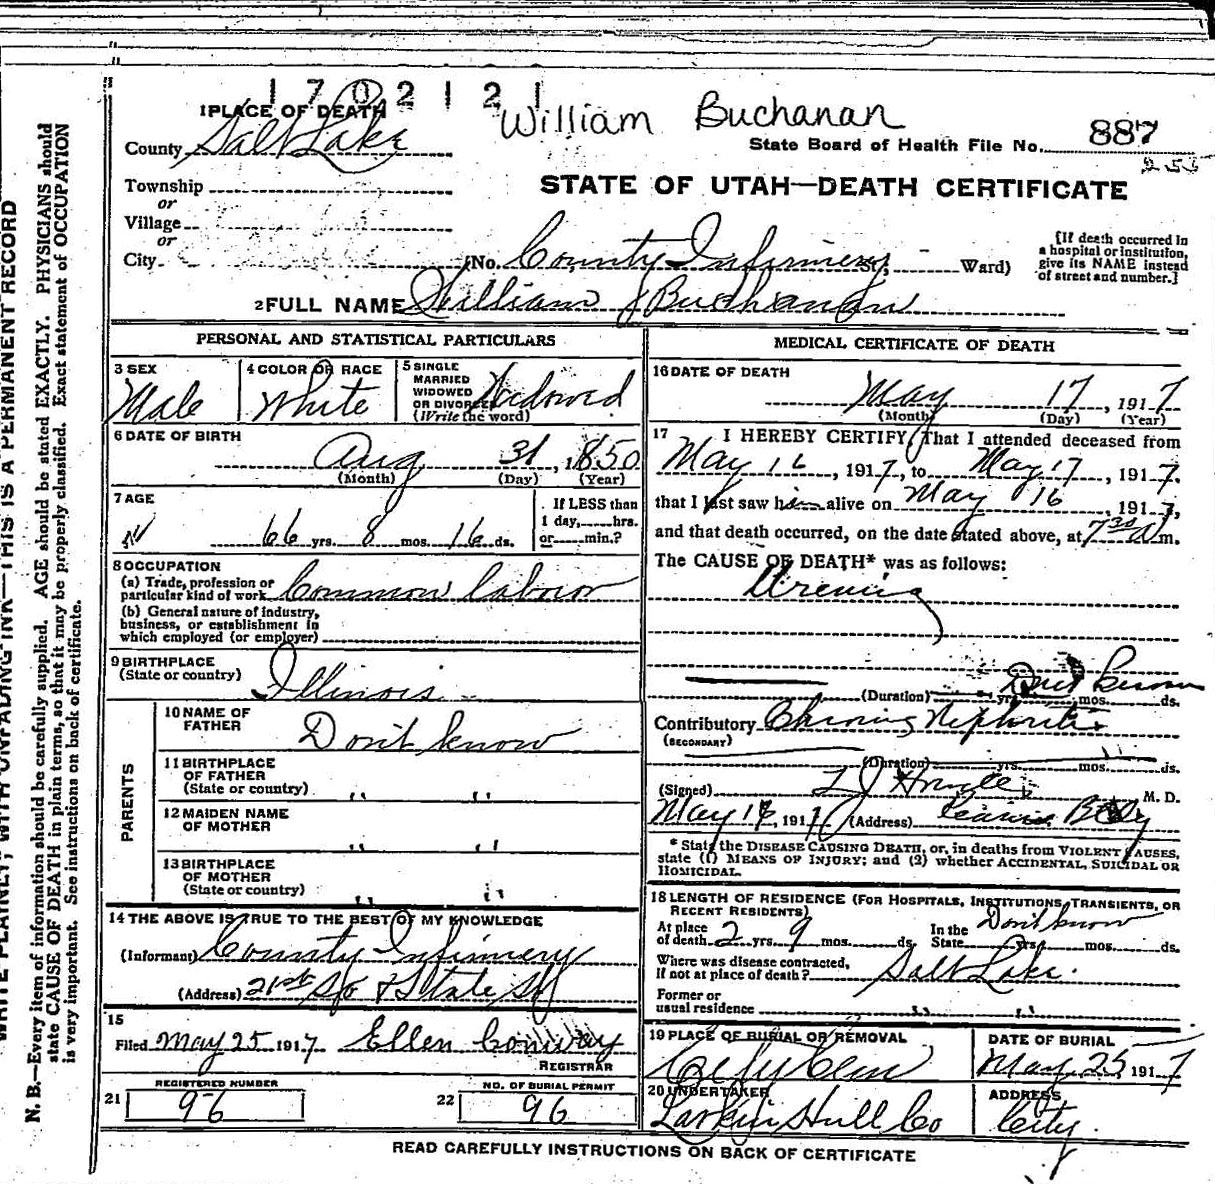 1702121
William Buchanan
1 PLACE OF DEATH
County Salt Lake
State Board of Health File No. 887
255
Township
or
Village
or
City
STATE OF UTAH—DEATH CERTIFICATE
(No. County Infirmery St. Ward)
[If death occurred in a hospital or institution, give its NAME instead of street and number.]
2 FULL NAME William J Buchanan
PERSONAL AND STATISTICAL PARTICULARS
3 SEX
Male
4 COLOR OR RACE
White
5 SINGLE MARRIED WIDOWED OR DIVORCED (Write the word)
Widowed
6 DATE OF BIRTH
Aug 31, 1850
(Month) (Day) (Year)
7 AGE
66 yrs. 8 mos. 16 ds.
If LESS than 1 day, hrs. or min.?
8 OCCUPATION
(a) Trade, profession or particular kind of work Common labour
(b) General nature of industry, business, or establishment in which employed (or employer)
9 BIRTHPLACE
(State or country) Illinois
PARENTS
10 NAME OF FATHER Don't know
11 BIRTHPLACE OF FATHER (State or country) " "
12 MAIDEN NAME OF MOTHER " "
13 BIRTHPLACE OF MOTHER (State or country) " "
14 THE ABOVE IS TRUE TO THE BEST OF MY KNOWLEDGE
(Informant) County Infirmery
(Address) 21st So & State St
15
Filed May 25 1917 Ellen Conway
REGISTRAR
REGISTERED NUMBER
21 96
NO. OF BURIAL PERMIT
22 96
MEDICAL CERTIFICATE OF DEATH
16 DATE OF DEATH
May 17, 1917
(Month) (Day) (Year)
17 I HEREBY CERTIFY, That I attended deceased from
May 16, 1917, to May 17, 1917,
that I last saw him alive on May 16 1917,
and that death occurred, on the date stated above, at 7 30 A m.
The CAUSE OF DEATH* was as follows:
(Duration) yrs. Don't know mos. ds.
Contributory Nephritis
(SECONDARY)
(Duration) yrs. mos. ds.
(Signed) M. D.
May 1917 (Address)
* State the DISEASE CAUSING DEATH, or, in deaths from VIOLENT CAUSES,
state (1) MEANS OF INJURY; and (2) whether ACCIDENTAL, SUICIDAL OR
HOMICIDAL.
18 LENGTH OF RESIDENCE (FOR HOSPITALS, INSTITUTIONS, TRANSIENTS, OR
RECENT RESIDENTS)
At place of death 2 yrs. 9 mos. ds. In the State Don't know yrs. mos. ds.
Where was disease contracted,
If not at place of death? Salt Lake.
Former or
usual residence " "
19 PLACE OF BURIAL OR REMOVAL
City Cem
DATE OF BURIAL
May 25, 1917
20 UNDERTAKER
Larkin Hull Co
ADDRESS
City.
READ CAREFULLY INSTRUCTIONS ON BACK OF CERTIFICATE
WRITE PLAINLY, WITH UNFADING INK—THIS IS A PERMANENT RECORD
N. B.—Every item of information should be carefully supplied. AGE should be stated EXACTLY. PHYSICIANS should
state CAUSE OF DEATH in plain terms, so that it may be properly classified. Exact statement of OCCUPATION
is very important. See instructions on back of certificate.